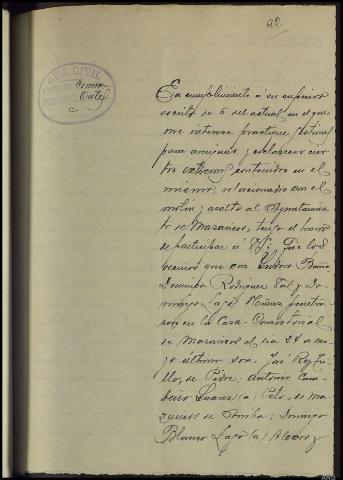 92
G.A. CIVIL
Coman
En cumplimiento a su superior
escrito de 6 del actual en el que
me interesa practique
para averiguar y esclarecer cier-
tos extremos contenidos en el
mismo, relacionado con el
motín y asalto al Ayuntamien-
to de Mazaricos, tengo el honor
de participar á V.S. que los
vecinos que con Isidoro
Domingo Rodriguez Tal y Do-
mingo Lago penetra-
ron en la Casa-Consistorial
de Mazaricos el dia 24 de ma-
yo último son, José Rey
de Antonio Cam-
beiro Suarez (a) de Ma-
zaricos de Arriba; Domingo
Blanco Lago (a)